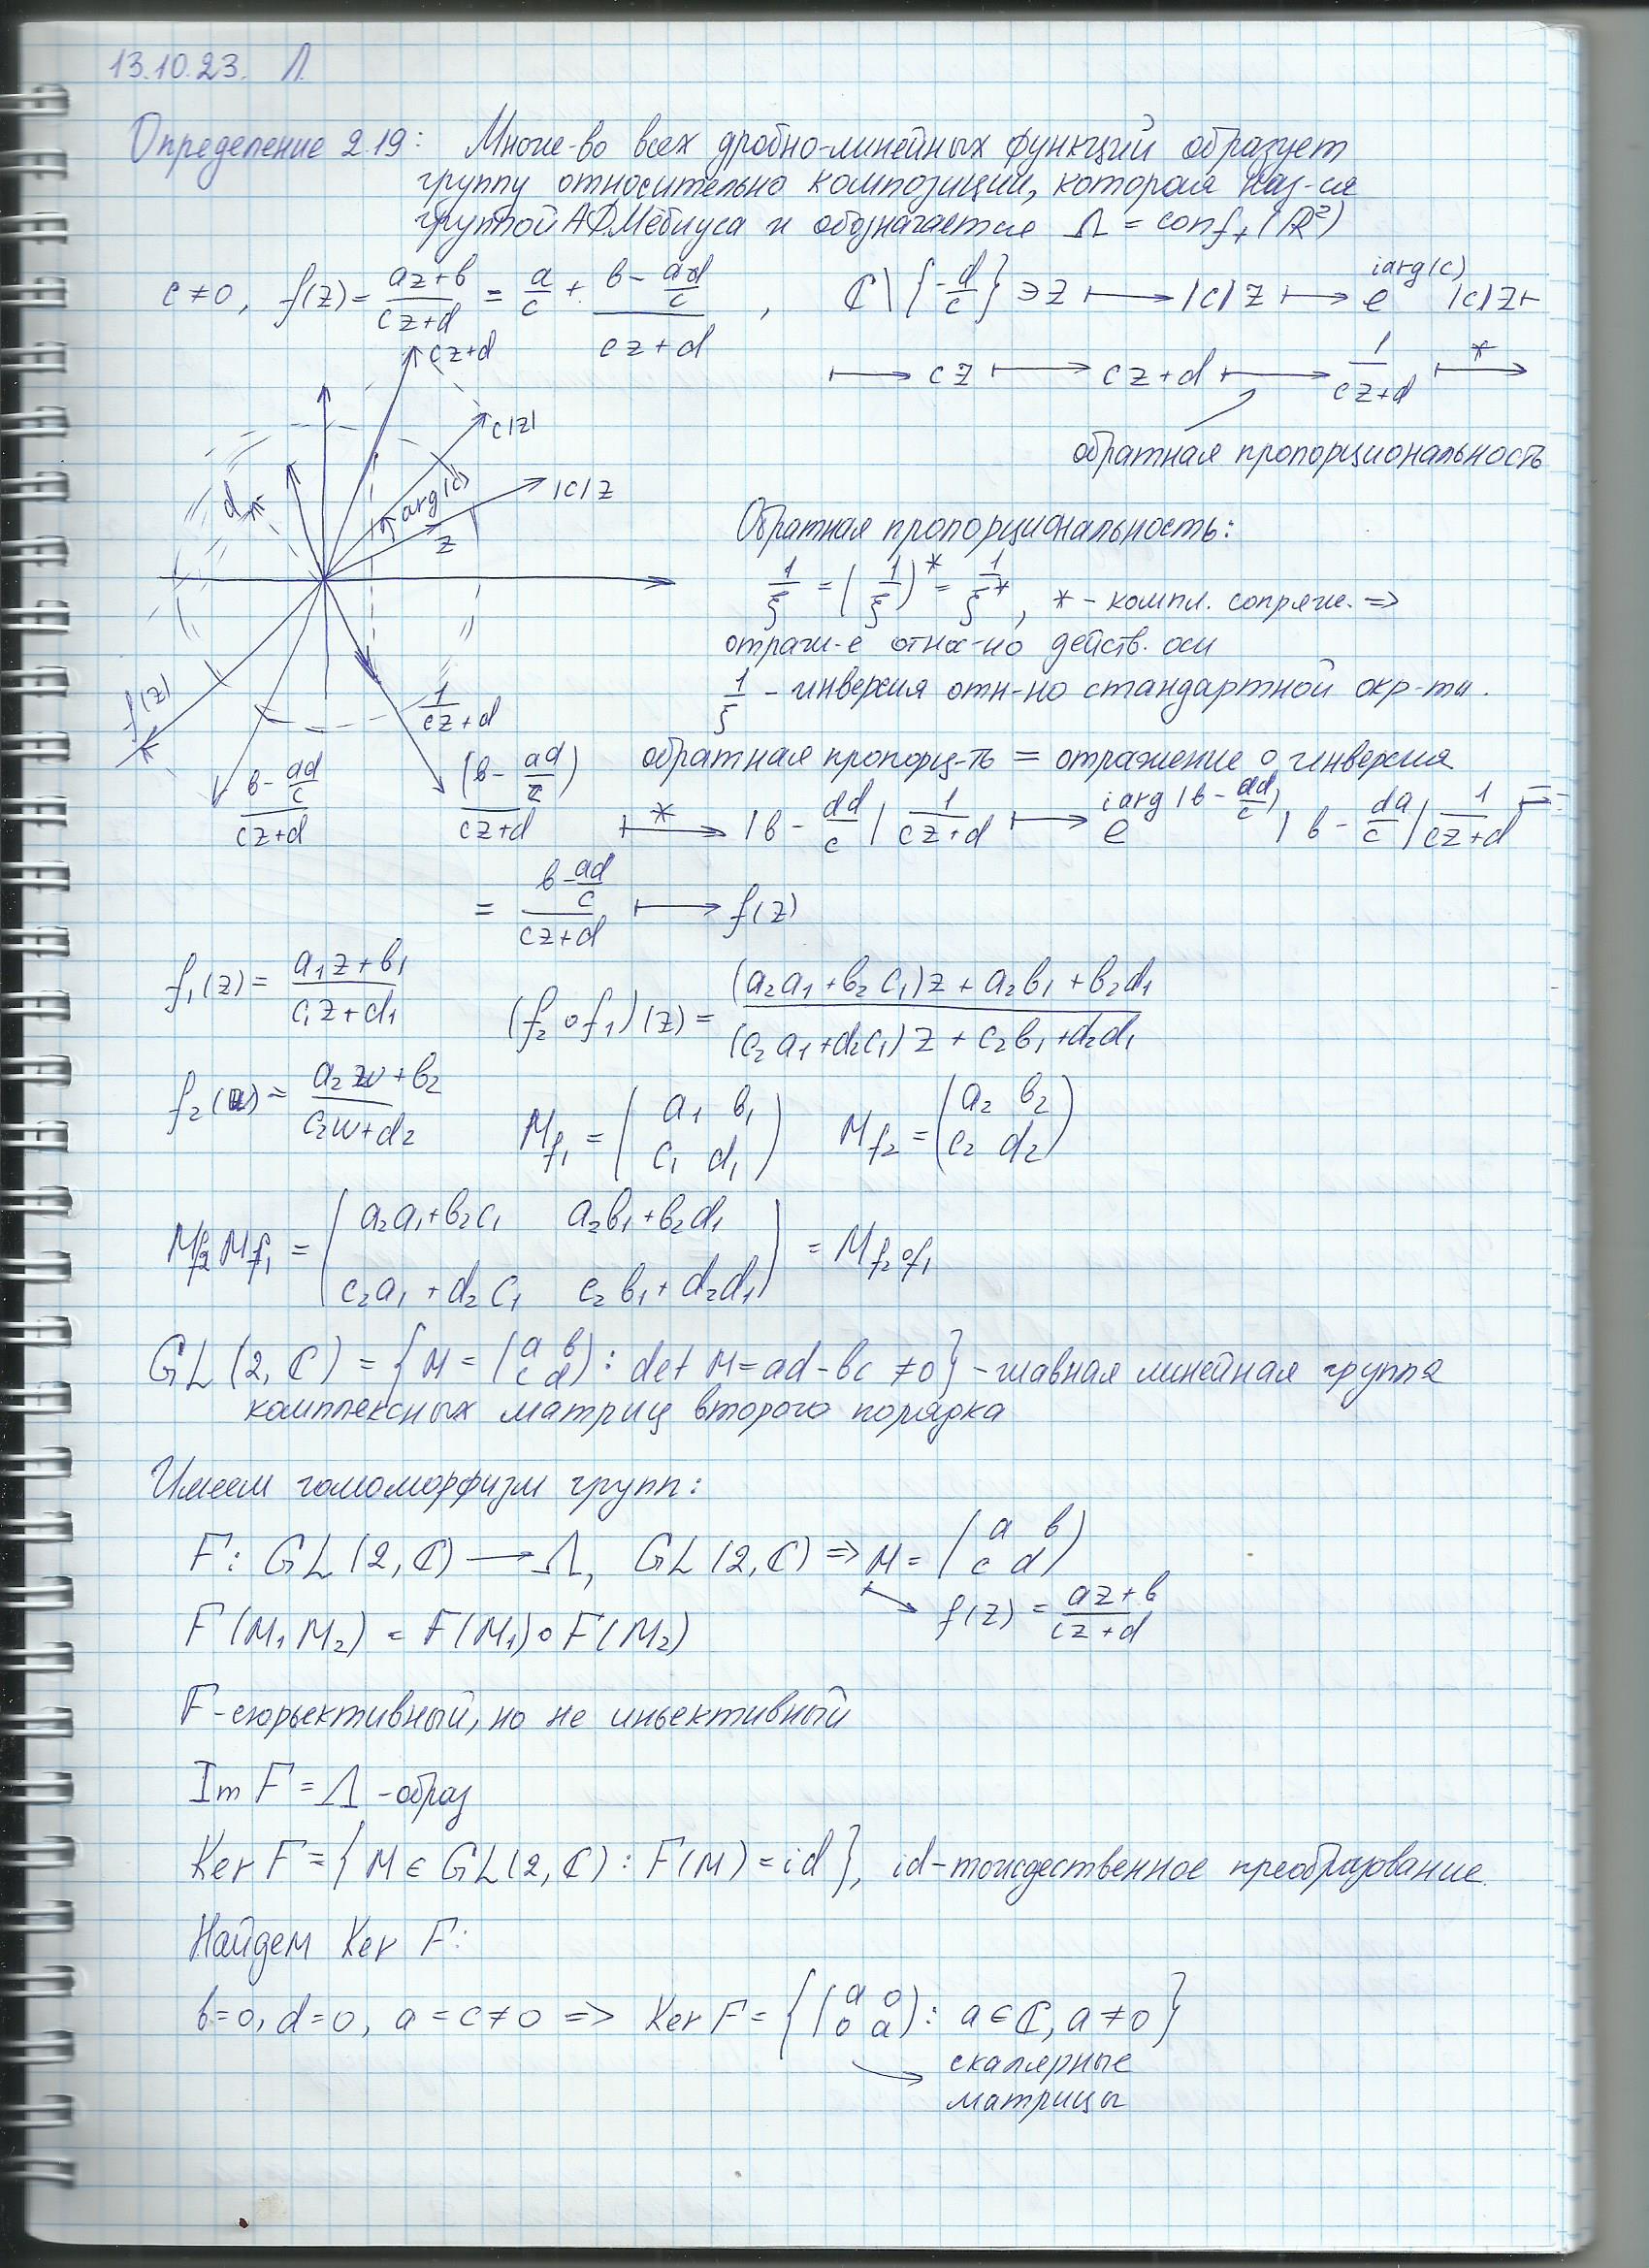 13.10.23. Л.
Определение 2.19: Множ-во всех дробно-линейных функций образует
группу относительно композиции, которая наз-ся
группой А.Ф.Мёбиуса и обозначается Λ = conf₊(ℝ²)
c ≠ 0, f(z) = (az+b)/(cz+d) = a/c + (b - ad/c)/(cz+d), ℂ\{-d/c} ∋ z ⟼ |c|z ⟼ e^{iarg(c)} |c|z ⟼
⟼ cz ⟼ cz+d ⟼ 1/(cz+d) ⟼*
обратная пропорциональность
cz+d
c|z|
|c|z
arg(c)
z
d
f(z)
1/(cz+d)
(b - ad/c)/(cz+d)
(b - ad/c)/(cz+d)
Обратная пропорциональность:
1/ξ = (1/ξ)* = 1/ξ*, * - компл. сопряж. =>
отраж-е относ-но действ. оси
1/ξ - инверсия отн-но стандартной окр-ти.
обратная пропорц-ть = отражение ∘ инверсия
⟼* |b - ad/c| 1/(cz+d) ⟼ e^{iarg(b - ad/c)} |b - da/c| 1/(cz+d) =
= (b - ad/c)/(cz+d) ⟼ f(z)
f₁(z) = (a₁z+b₁)/(c₁z+d₁)
(f₂∘f₁)(z) = ((a₂a₁+b₂c₁)z + a₂b₁ + b₂d₁)/((c₂a₁+d₂c₁)z + c₂b₁+d₂d₁)
f₂(w) = (a₂w+b₂)/(c₂w+d₂)
M_f₁ = (a₁ b₁ / c₁ d₁) M_f₂ = (a₂ b₂ / c₂ d₂)
M_f₂ M_f₁ = (a₂a₁+b₂c₁ a₂b₁+b₂d₁ / c₂a₁+d₂c₁ c₂b₁+d₂d₁) = M_f₂∘f₁
GL(2,ℂ) = {M = (a b / c d) : det M = ad - bc ≠ 0} - главная линейная группа
комплексных матриц второго порядка
Имеем гомоморфизм групп:
F: GL(2,ℂ) ⟶ Λ, GL(2,ℂ) => M = (a b / c d)
⟼ f(z) = (az+b)/(cz+d)
F(M₁M₂) = F(M₁)∘F(M₂)
F-сюрьективный, но не иньективный
Im F = Λ - образ
Ker F = {M ∈ GL(2,ℂ) : F(M) = id}, id-тождественное преобразование.
Найдем Ker F:
b=0, d=0, a = c ≠ 0 => Ker F = {(a 0 / 0 a) : a ∈ ℂ, a ≠ 0}
скалярные
матрицы